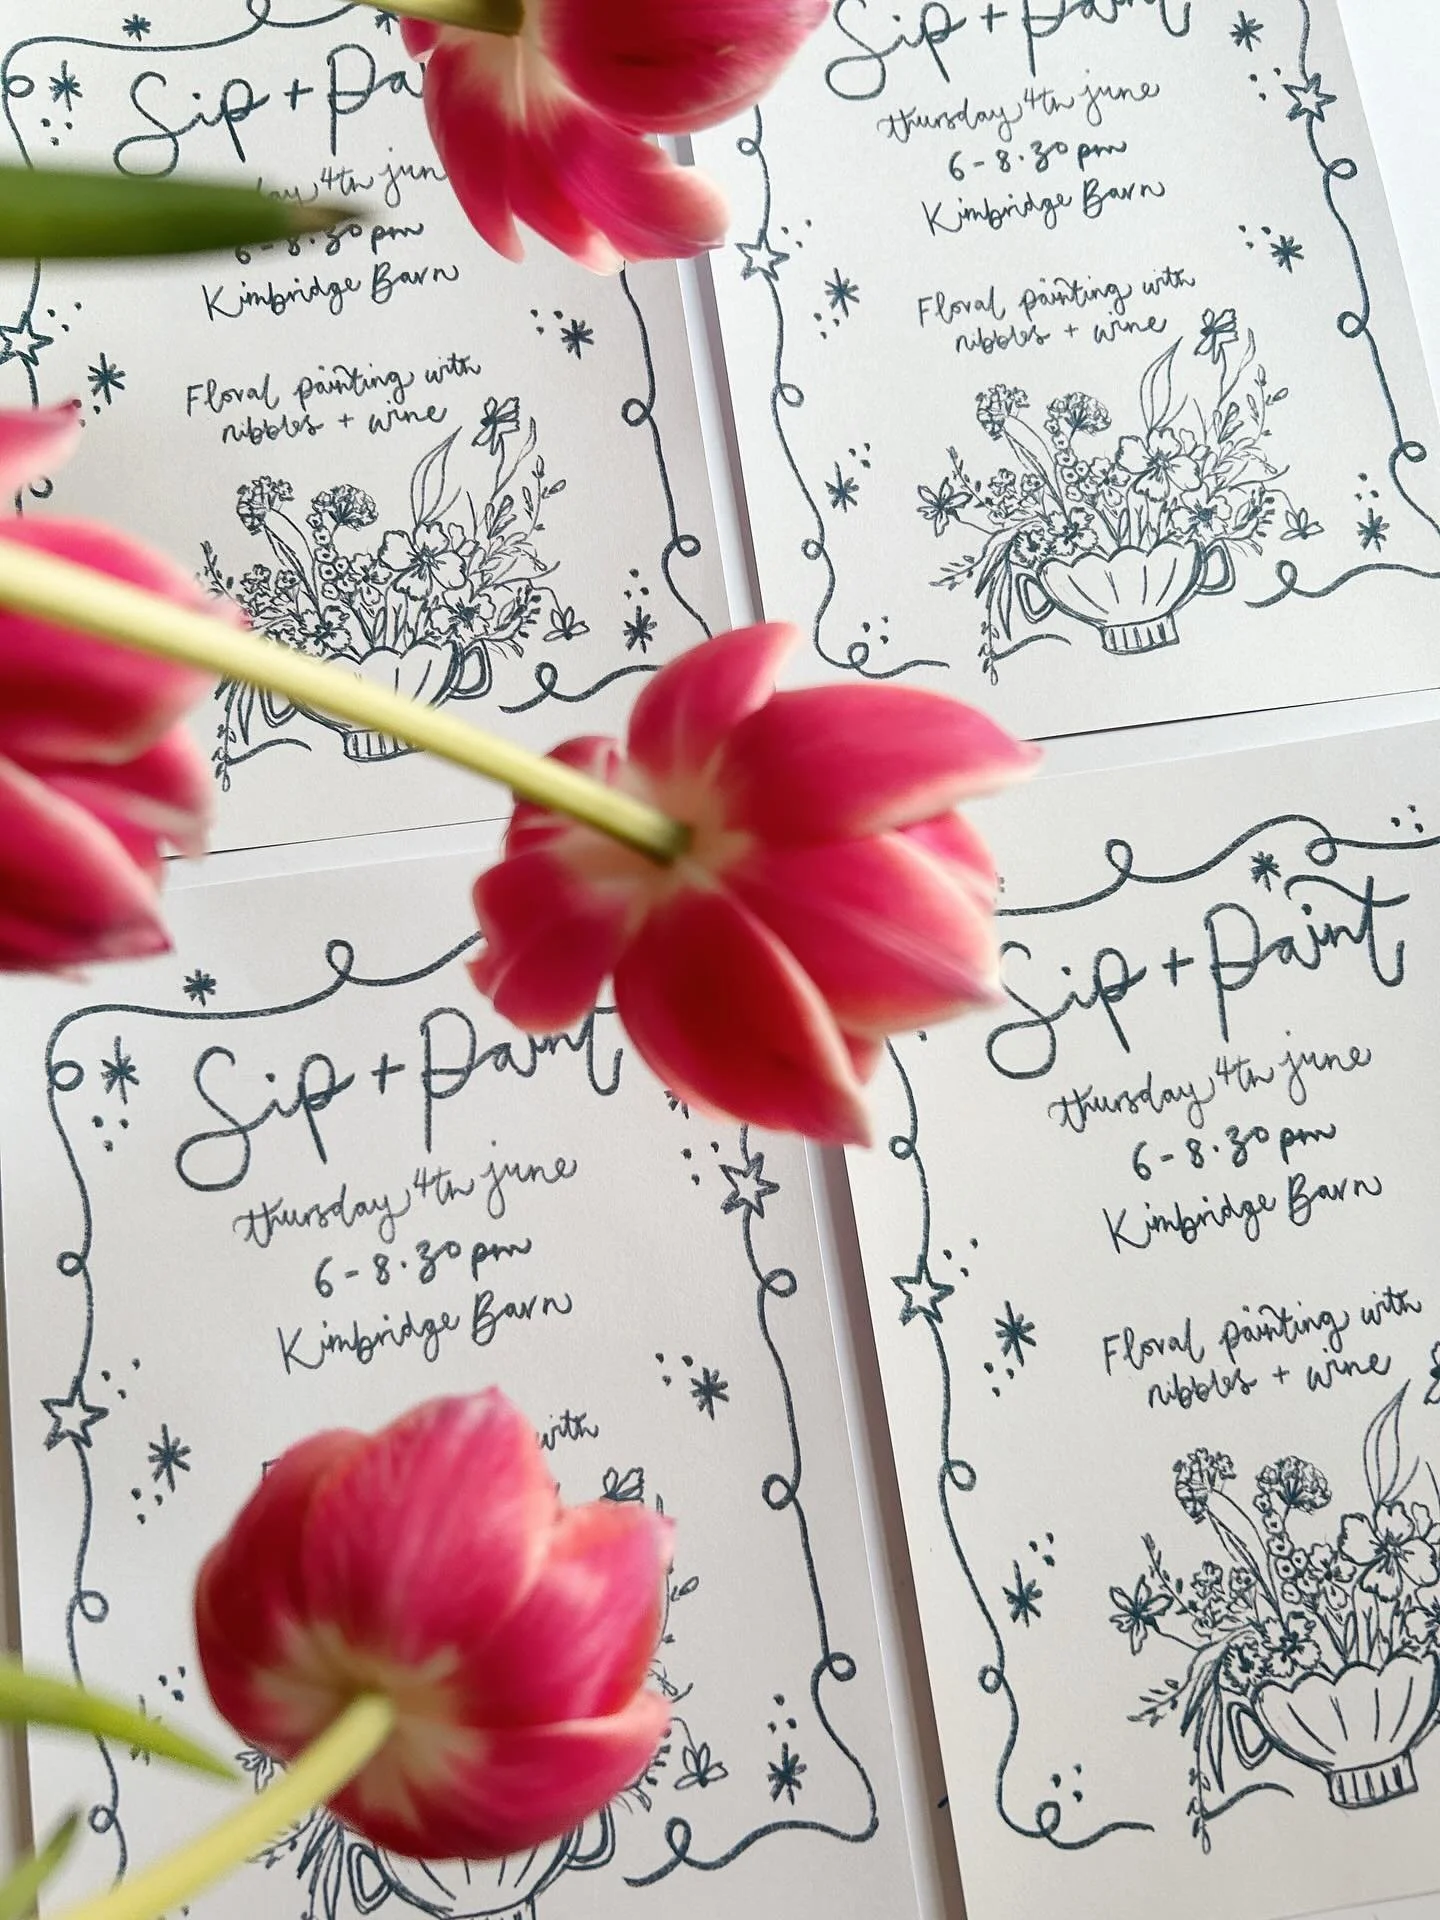 Sip + Pa
4th jun
6-8.30pm
Kimbridge Barn
Floral painting with
nibbles + wine
Sip + Paint
thursday 4th june
6-8.30pm
Kimbridge Barn
Floral painting with
nibbles + wine
Sip + Paint
thursday 4th june
6-8.30pm
Kimbridge Barn
with
Sip + Paint
thursday 4th june
6-8.30pm
Kimbridge Barn
Floral painting with
nibbles + wine